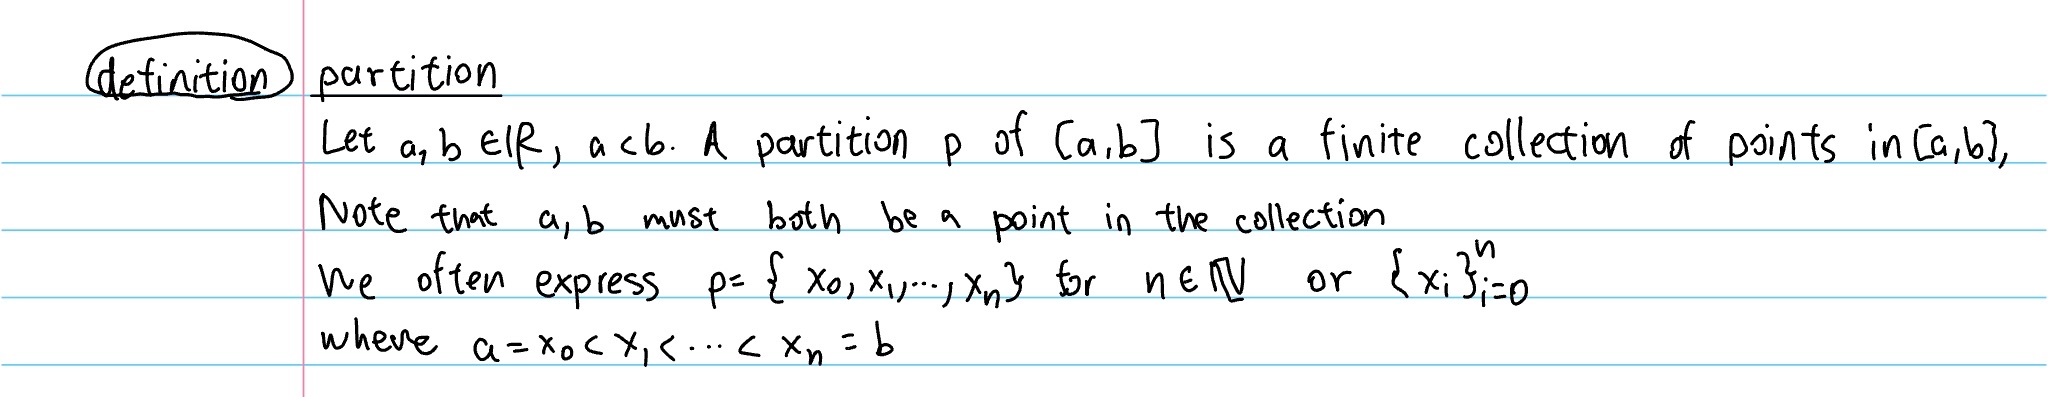 definition partition
Let a, b ∈ ℝ, a < b. A partition p of [a,b] is a finite collection of points in [a,b],
Note that a, b must both be a point in the collection
We often express p = { x₀, x₁, ..., xₙ } for n ∈ ℕ or {xᵢ}ⁿᵢ₌₀
where a = x₀ < x₁ < ... < xₙ = b